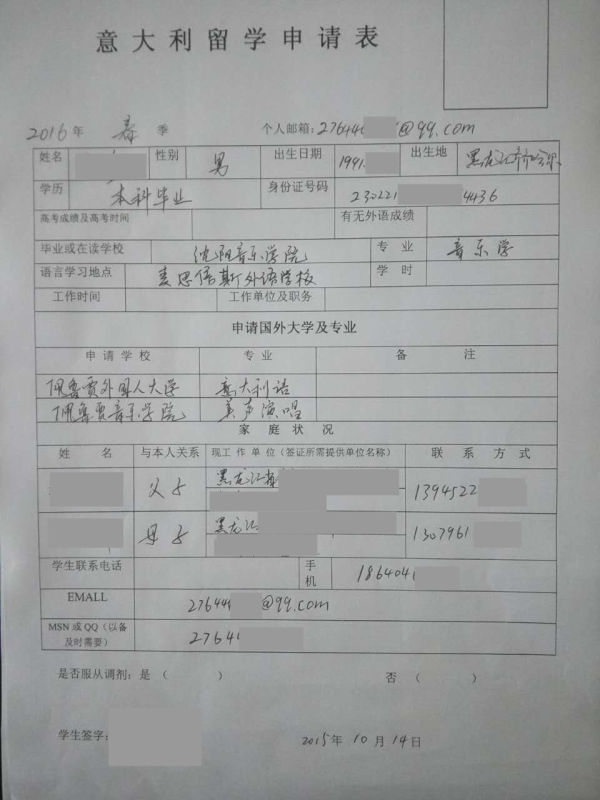 意大利留学申请表
2016年 春 季 个人邮箱:27644 @qq.com
姓名 性别 男 出生日期 1991. 出生地 黑龙江齐齐哈尔
学历 本科毕业 身份证号码 230221 4436
高考成绩及高考时间 有无外语成绩
毕业或在读学校 沈阳音乐学院 专业 音乐学
语言学习地点 麦思倍斯外语学校 学时
工作时间 工作单位及职务
申请国外大学及专业
申请学校 专业 备注
佩鲁贾外国人大学 意大利语
佩鲁贾音乐学院 美声演唱
家庭状况
姓名 与本人关系 现工作单位(签证所需提供单位名称) 联系方式
父子 黑龙江 1394522
母子 黑龙江 1307961
学生联系电话 手机 1864041
EMALL 27644 @qq.com
MSN 或 QQ(以备及时需要) 2764
是否服从调剂:是( ) 否( )
学生签字: 2015年 10月 14日